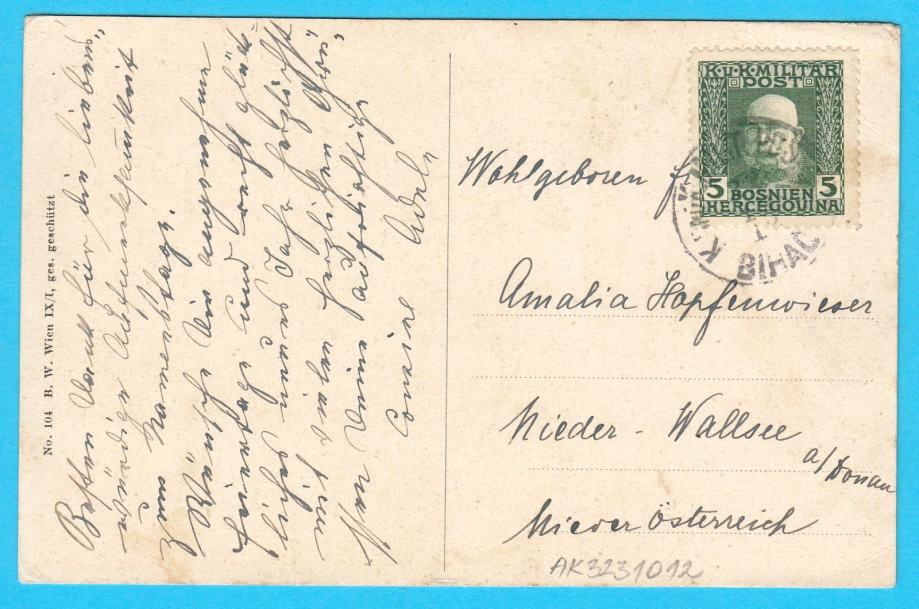 No. 104 B. W. Wien IX/1, ges. geschützt
Besten Dank für die lieben
würdige Aufmerksamkeit
zum Namenstage.
Wünsche Dir angenehme
Feiertage und recht glück-
liches neues Jahr herzlichst
mit vielen herzlichen Grü-
ßen Deine aufrichtige
Cousine Adele
K.u.K. MILITÄR
POST
5 BOSNIEN 5
HERCEGOVINA
BIHAĆ
Wohlgeboren
Amalia Hopfenwieser
Nieder-Wallsee
a/Donau
Nieder Österreich
AK3231012